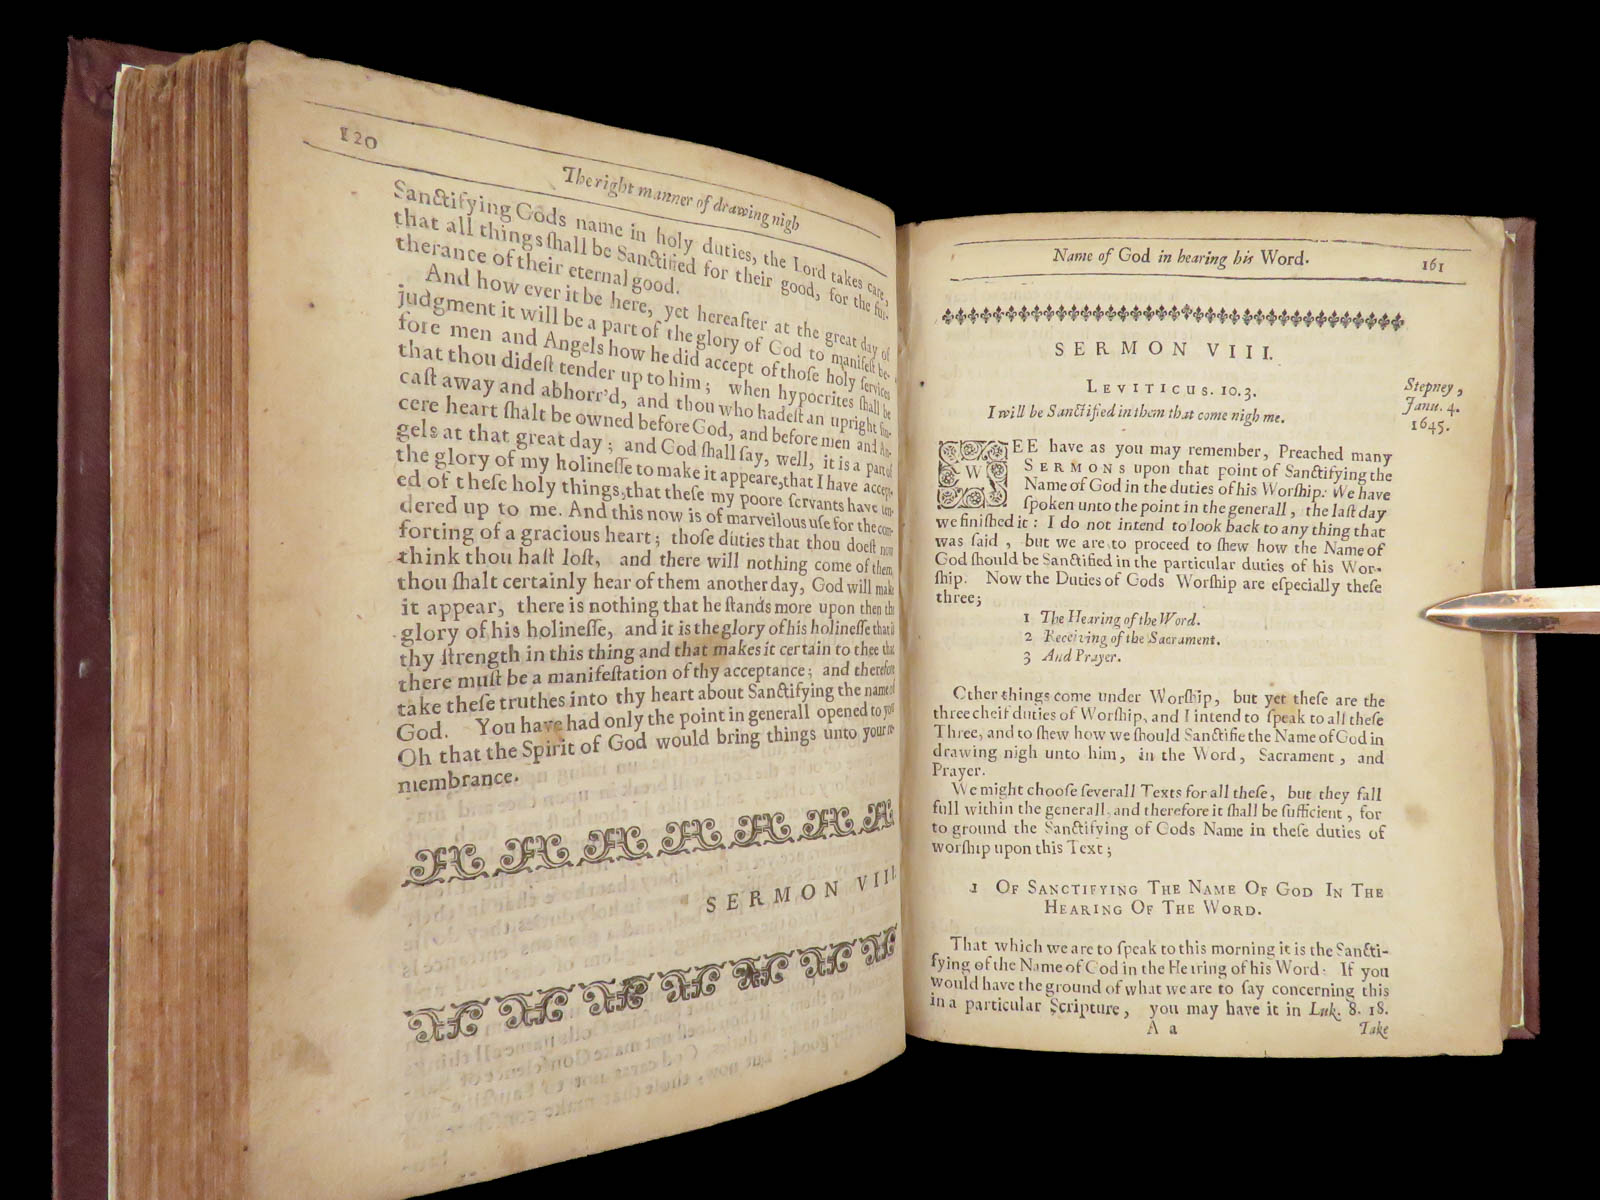 120
The right manner of drawing nigh
Sanctifying Gods name in holy duties, the Lord takes care,
that all things ſhall be Sanctified for their good, for the fur-
therance of their eternal good.
And how ever it be here, yet hereafter at the great day of
judgment it will be a part of the glory of God to manifeſt be-
fore men and Angels how he did accept of thoſe holy ſervices
that thou dideſt tender up to him; when hypocrites ſhall be
caſt away and abhorr'd, and thou who hadeſt an upright ſin-
cere heart ſhalt be owned before God, and before men and An-
gels at that great day; and God ſhall ſay, well, it is a part of
the glory of my holineſſe to make it appeare, that I have accept-
ed of theſe holy things, that theſe my poore ſervants have ten-
dered up to me. And this now is of marveilous uſe for the com-
forting of a gracious heart; thoſe duties that thou doeſt now
think thou haſt loſt, and there will nothing come of them,
thou ſhalt certainly hear of them another day, God will make
it appear, there is nothing that he ſtands more upon then the
glory of his holineſſe, and it is the glory of his holineſſe that is
thy ſtrength in this thing and that makes it certain to thee that
there muſt be a manifeſtation of thy acceptance; and therefore
take theſe truthes into thy heart about Sanctifying the name of
God. You have had only the point in generall opened to you
Oh that the Spirit of God would bring things unto your re-
membrance.
SERMON VIII.
Name of God in hearing his Word.
161
SERMON VIII.
LEVITICUS. 10.3.
I will be Sanctified in them that come nigh me.
Stepney,
Janu. 4.
1645.
WEE have as you may remember, Preached many
SERMONS upon that point of Sanctifying the
Name of God in the duties of his Worſhip: We have
ſpoken unto the point in the generall, the laſt day
we finiſhed it: I do not intend to look back to any thing that
was ſaid, but we are to proceed to ſhew how the Name of
God ſhould be Sanctified in the particular duties of his Wor-
ſhip. Now the Duties of Gods Worſhip are eſpecially theſe
three;
1 The Hearing of the Word.
2 Receiving of the Sacrament.
3 And Prayer.
Other things come under Worſhip, but yet theſe are the
three cheif duties of Worſhip, and I intend to ſpeak to all theſe
Three, and to ſhew how we ſhould Sanctifie the Name of God in
drawing nigh unto him, in the Word, Sacrament, and
Prayer.
We might chooſe ſeverall Texts for all theſe, but they fall
full within the generall, and therefore it ſhall be ſufficient, for
to ground the Sanctifying of Gods Name in theſe duties of
worſhip upon this Text;
1 OF SANCTIFYING THE NAME OF GOD IN THE
HEARING OF THE WORD.
That which we are to ſpeak to this morning it is the Sancti-
fying of the Name of God in the Hearing of his Word: If you
would have the ground of what we are to ſay concerning this
in a particular Scripture, you may have it in Luk. 8. 18.
A a
Take